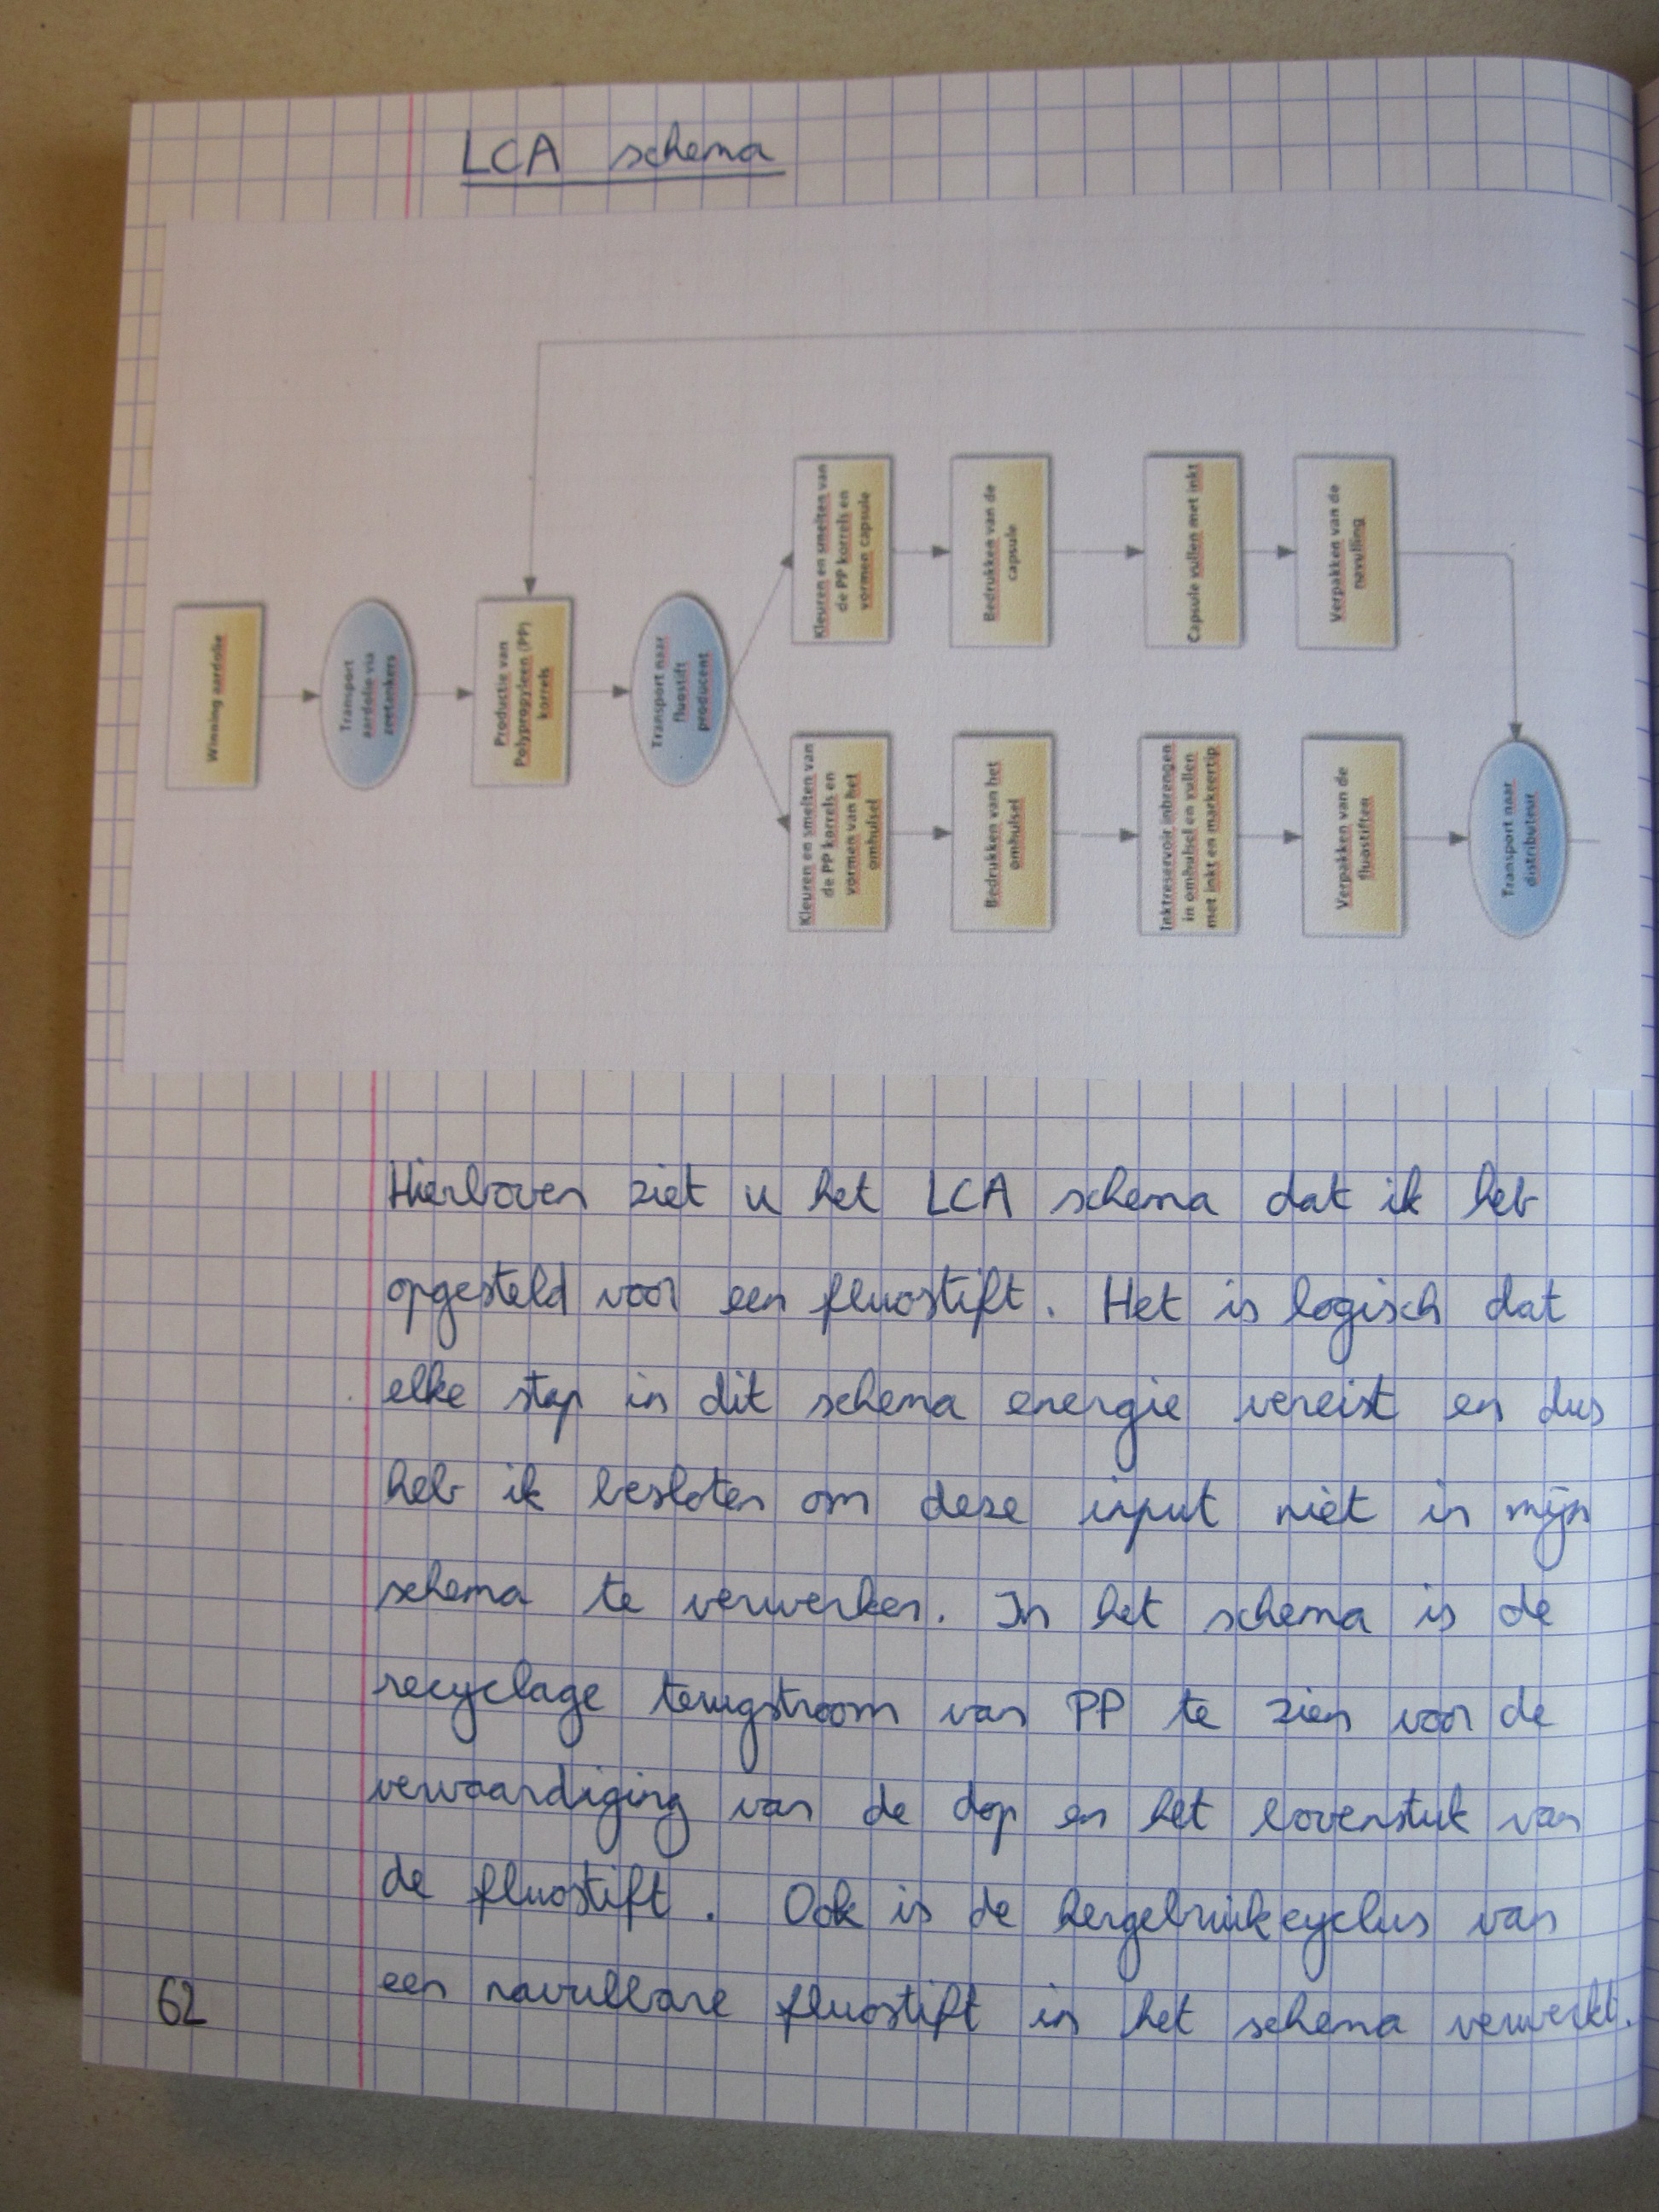 LCA schema
Winning aardolie
Transport
aardolie via
zeetankers
Productie van
Polypropyleen (PP)
korrels
Transport naar
fluostift
producent
Kleuren en smelten van
de PP korrels en
vormen capsule
Bedrukken van de
capsule
Capsule vullen met inkt
Verpakken van de
navulling
Kleuren en smelten van
de PP korrels en
vormen van het
omhulsel
Bedrukken van het
omhulsel
Inktreservoir inbrengen
in omhulsel en vullen
met inkt en markeertip
Verpakken van de
fluostiften
Transport naar
distributeur
Hierboven ziet u het LCA schema dat ik heb
opgesteld voor een fluostift. Het is logisch dat
elke stap in dit schema energie vereist en dus
heb ik besloten om deze input niet in mijn
schema te verwerken. In het schema is de
recyclage terugstroom van PP te zien voor de
vervaardiging van de dop en het bovenstuk van
de fluostift. Ook is de hergebruikcyclus van
een navulbare fluostift in het schema verwerkt.
62